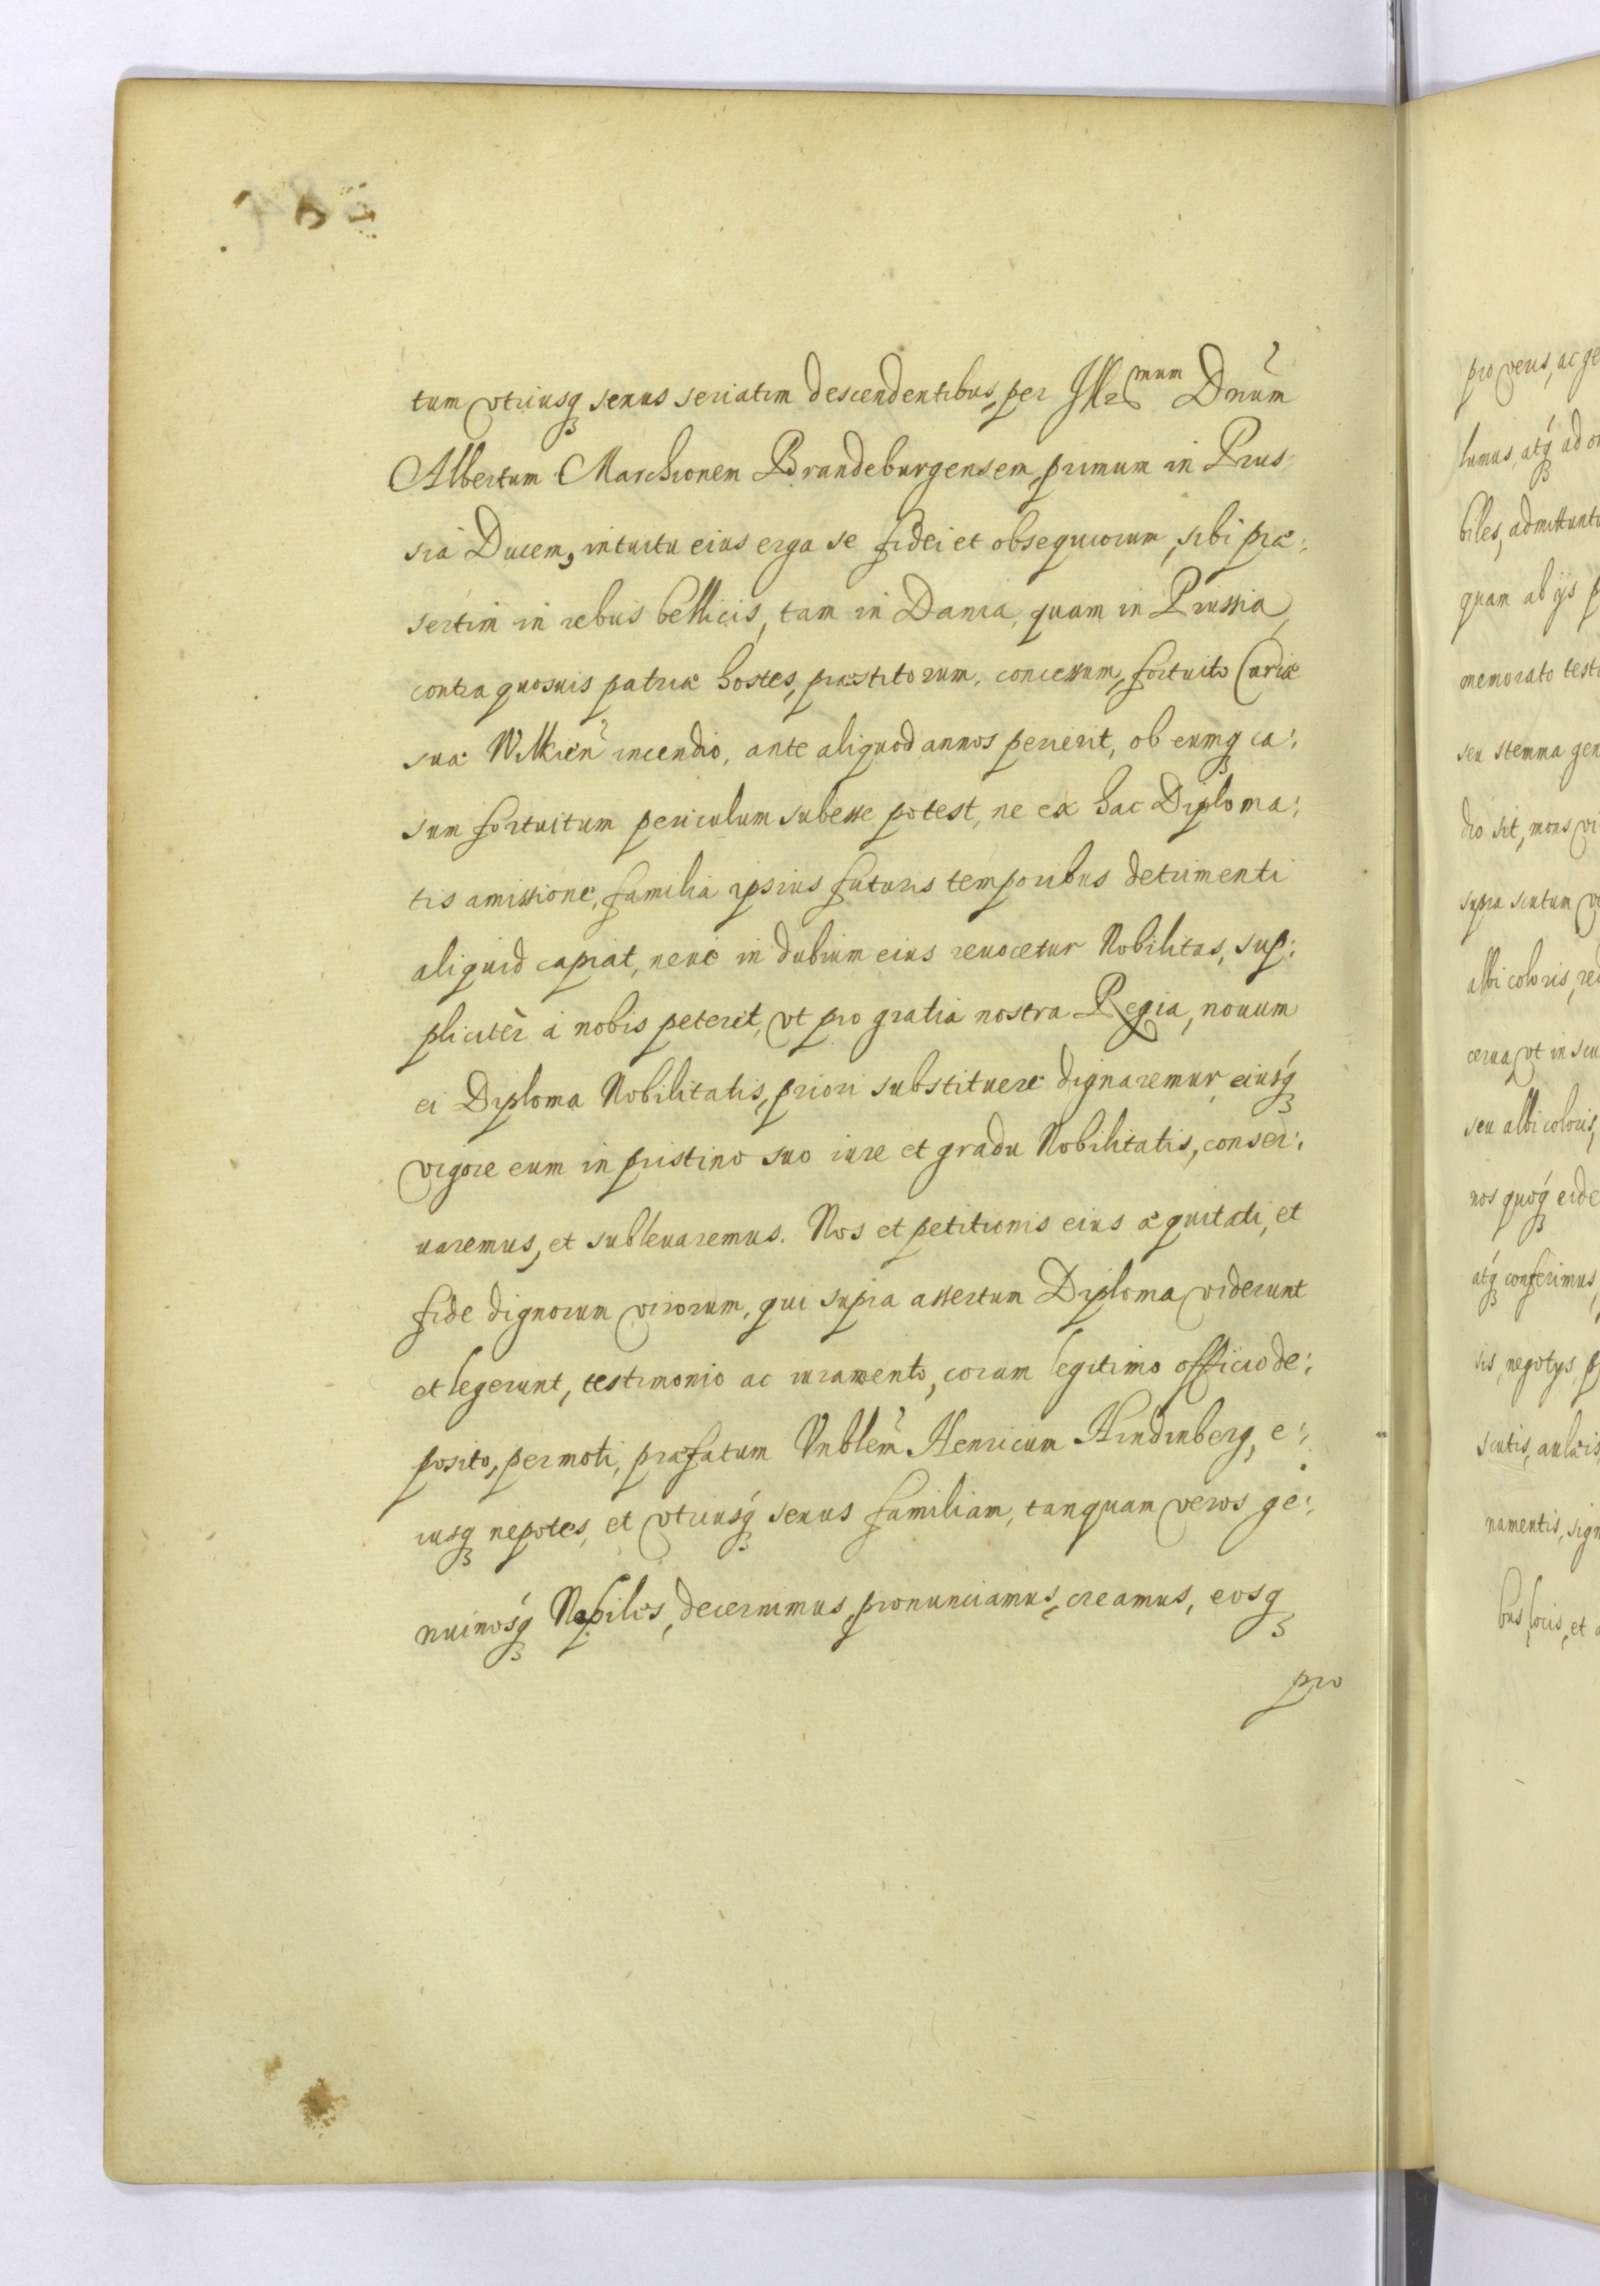 tum vtriusq₃ sexus seriatim descendentibus, per Illr̃mum Dnũm
Albertum Marchionem Brandeburgensem, primum in Prus-
sia Ducem, intuitu eius erga se fidei et obsequiorum, sibi præ:
sertim in rebus bellicis, tam in Dania, quam in Prussia,
contra quosuis patriæ hostes, præstitorum, concessum, fortuito Curiæ
suæ Wilkien̄ incendio, ante aliquod annos perierit, ob eumq₃ ca:
sum fortuitum periculum subesse potest, ne ex hac Diploma:
tis amissione, familia ipsius futuris temporibus detrimenti
aliquid capiat, neue in dubium eius reuocetur Nobilitas, sup:
plicitèr à nobis peterit, vt pro gratia nostra Regia, nouum
ei Diploma Nobilitatis, priori substituere dignaremur, eiusq́₃
vigore eum in pristino suo iure et gradu Nobilitatis, conser:
uaremus, et subleuaremus. Nos et petitionis eius æquitati, et
fide dignorum virorum, qui supra assertum Diploma viderunt
et legerunt, testimonio ac iuramento, coram legitimo officio de:
posito, permoti, præfatum Vnblem̃ Henricum Hindinberg, e:
iusq₃ nepotes, et vtriusq́₃ sexus familiam, tanquam veros ge:
nuinosq́₃ Nobiles, decernimus, pronunciamus, creamus, eosq₃
pro
pro veris, ac ge
lumus, atq́₃ ad o
biles, admittunt
quam ab ijs p
memorato test
seu stemma gen
dio sit, mons vi
supra scutum v
albi coloris, re
cerua, vt in scu
seu albi coloris,
nos quoq́₃ eide
atq́₃ conferimus,
sis, negotys, p
scutis, aulæis
namentis, sign
bus, locis, et